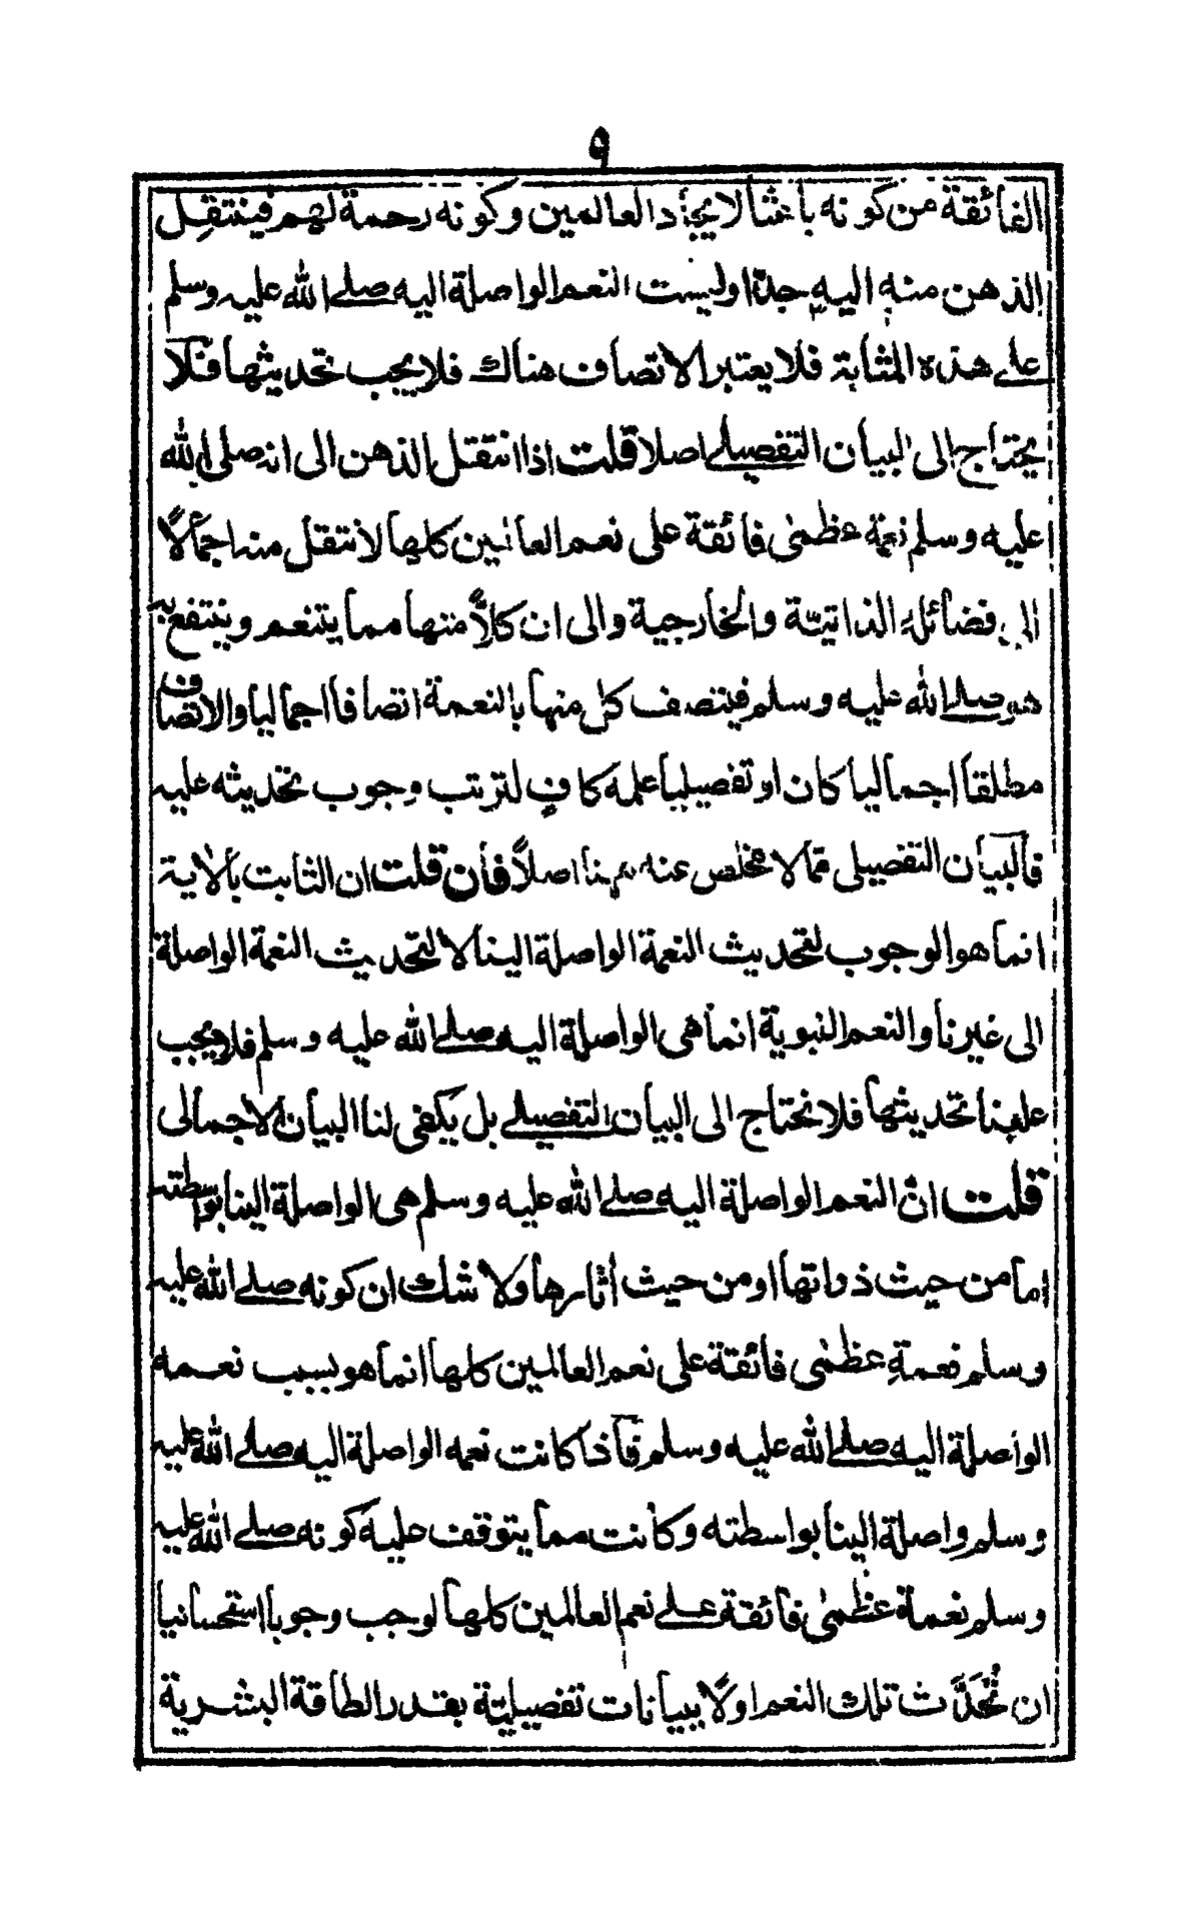 ٩
الفائقة من كونه باعثا لايجاد العالمين وكونه رحمة لهم فينتقل
الذهن منه اليه جدا وليست النعم الواصلة اليه صلى الله عليه وسلم
على هذه المثابة فلا يعتبر الاتصاف هناك فلا يجب تحديثها فلا
يحتاج الى البيان التفصيلى اصلا قلت اذا انتقل الذهن الى انه صلى الله
عليه وسلم نعمة عظمى فائقة على نعم العالمين كلها لانتقل منه اجمالًا
الى فضائله الذاتيّة والخارجية والى ان كلًّا منها مما يتنعم وينتفع به
هو صلى الله عليه وسلم فيتصف كل منها بالنعمة اتصافا اجماليا والاتصاف
مطلقا اجماليا كان او تفصيليا علمه كافٍ لترتب وجوب تحديثه عليه
فالبيان التفصيلى ممالا مخلص عنه ههنا اصلًا فان قلت ان الثابت بالاية
انما هو الوجوب لتحديث النعمة الواصلة الينا لا لتحديث النعمة الواصلة
الى غيرنا والنعم النبوية انما هى الواصلة اليه صلى الله عليه وسلم فلا يجب
علينا تحديثها فلا نحتاج الى البيان التفصيلى بل يكفى لنا البيان الاجمالى
قلت انّ النعم الواصلة اليه صلى الله عليه وسلم هى الواصلة الينا بواسطته
اما من حيث ذواتها او من حيث أثارها ولا شك ان كونه صلى الله عليه
وسلم نعمةٍ عظمٰى فائقة على نعم العالمين كلها انما هو بسبب نعمه
الواصلة اليه صلى الله عليه وسلم فاذا كانت نعمه الواصلة اليه صلى الله عليه
وسلم واصلة الينا بواسطته وكانت مما يتوقف عليه كونه صلى الله عليه
وسلم نعمة عظمٰى فائقة على نعم العالمين كلها لوجب وجوبا استحسانيا
ان نُحَدِّث تلك النعم اولًا ببيانات تفصيليّة بقدر الطاقة البشرية